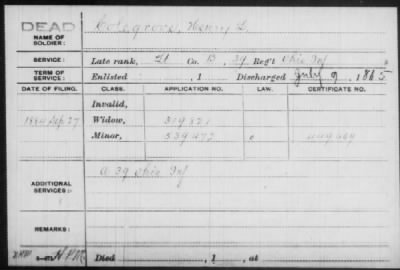 DEAD
NAME OF SOLDIER: Colegrove, Henry
SERVICE: Late rank, Co. B, 39 Reg't Ohio Inf
TERM OF SERVICE: Enlisted , 1 Discharged July 9, 1865
DATE OF FILING. CLASS. APPLICATION NO. LAW. CERTIFICATE NO.
Invalid,
1884 Sep 27 Widow, 319821
Minor, 539472
ADDITIONAL SERVICES: A 39 Ohio Inf
REMARKS:
Died , 1 , at